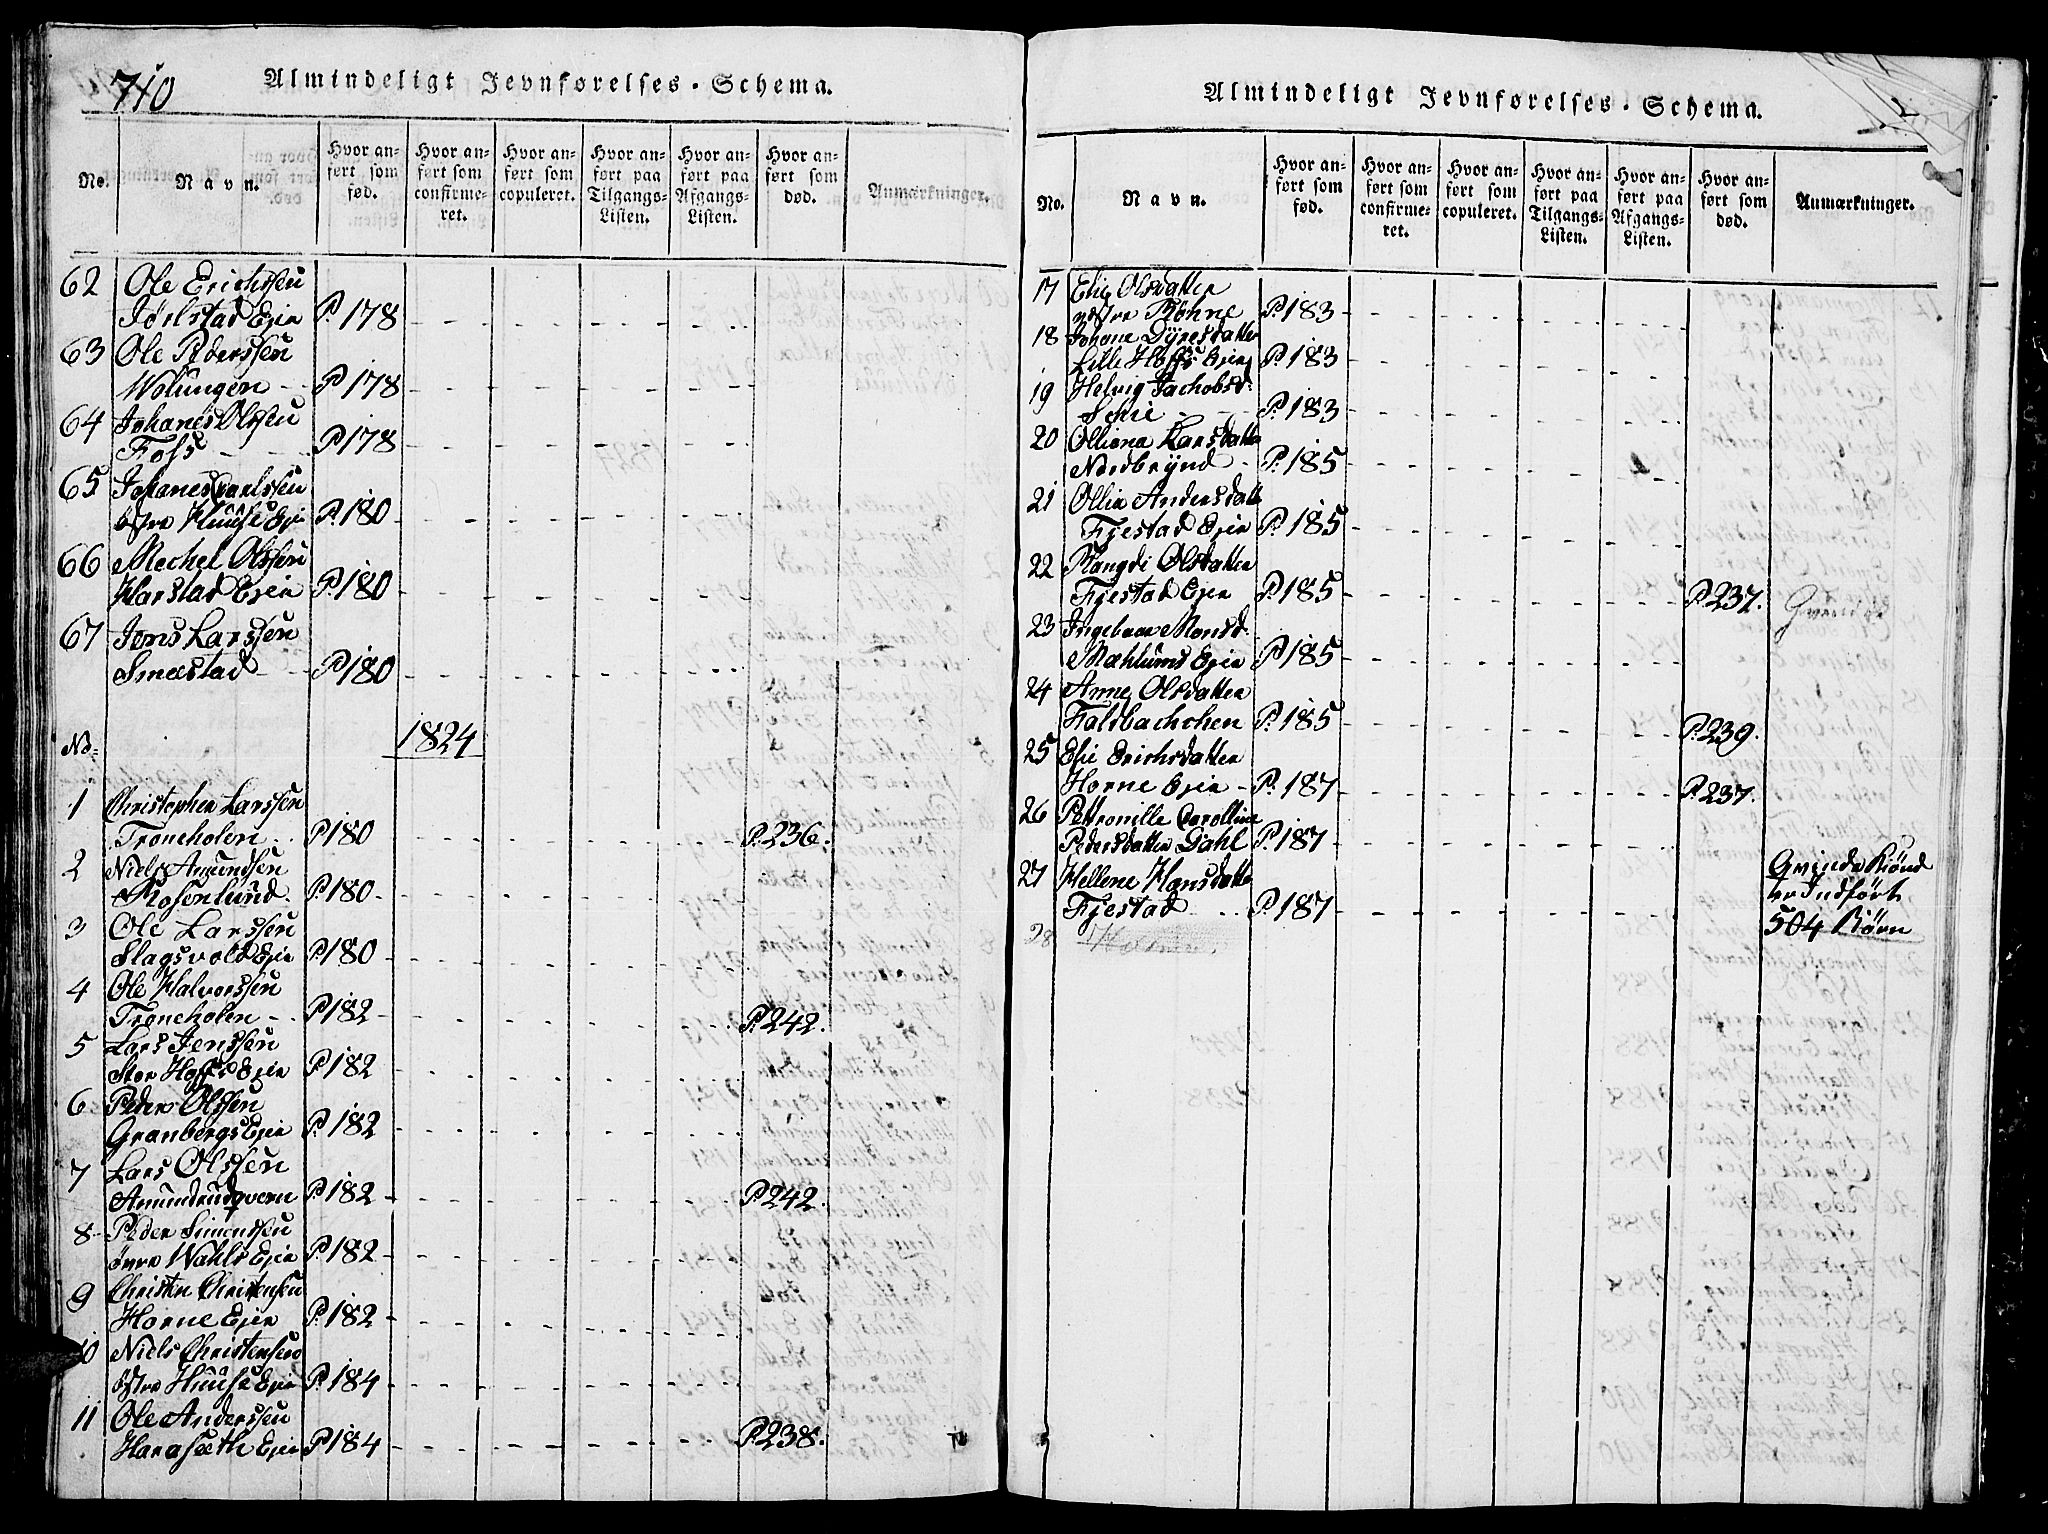 710
Almindeligt Jevnførelses-Schema.
No.
Navn.
Hvor anført som fød.
Hvor anført som confirmeret.
Hvor anført som copuleret.
Hvor anført paa Tilgangs-Listen.
Hvor anført paa Afgangs-Listen.
Hvor anført som død.
Anmærkninger.
62 Ole Erichssen
Jørlstad Ejer P. 178
63 Ole Pederssen
Wolungen P. 178
64 Johanes Olssen
Foss P. 178
65 Johanes Carlssen
østre Huuse Eje P. 180
66 Mechel Olssen
Harstad Ejer P. 180
67 Jens Larssen
Smestad P. 180
No. 1824
1 Christopher Larssen
Troneholen P. 180 P. 236.
2 Niels Amundsen
Rosenlund P. 180
3 Ole Larssen
Slagsvold Ejer P. 180
4 Ole Halvorssen
Troneholen P. 182 P. 242.
5 Lars Jenssen
Stor Hoffs Ejer P. 182
6 Peder Olssen
Granbergs Ejer P. 182
7 Lars Olssen
Amundrudqvern P. 182 P. 242.
8 Peder Simenssen
øvre Wahls Ejer P. 182
9 Christen Christensen
Horne Ejer P. 182
10 Niels Christensen
østre Huuse Ejer P. 184
11 Ole Anderssen
Haraseth Ejer P. 184 P. 238.
Almindeligt Jevnførelses-Schema.
No.
Navn.
Hvor anført som fød.
Hvor anført som confirmeret.
Hvor anført som copuleret.
Hvor anført paa Tilgangs-Listen.
Hvor anført paa Afgangs-Listen.
Hvor anført som død.
Anmærkninger.
17 Elie Olsdatter
østre Røhne P. 183
18 Johane Dyresdatter
Lille Hoffs Ejer P. 183
19 Helvig Jachobsd:
Schie P. 183
20 Olliana Larsdatter
Nordbrynd P. 185
21 Ollia Andersdatt
Fjestad Ejer P. 185
22 Rangdi Olsdatter
Fjestad Ejer P. 185 P. 237.
23 Ingebaar Monsd:
Mæhlums Ejer P. 185
24 Anne Olsdatter
Faldbachchen P. 185 P. 239.
25 Elie Erichsdatter
Horne Ejer P. 187 P. 237.
26 Pettronille Carolline
Pedersdatter Dahl P. 187
27 Hellene Hansdatter
Fjestad P. 187
Qvinde Kiønd
er Indført
504 Børn
28